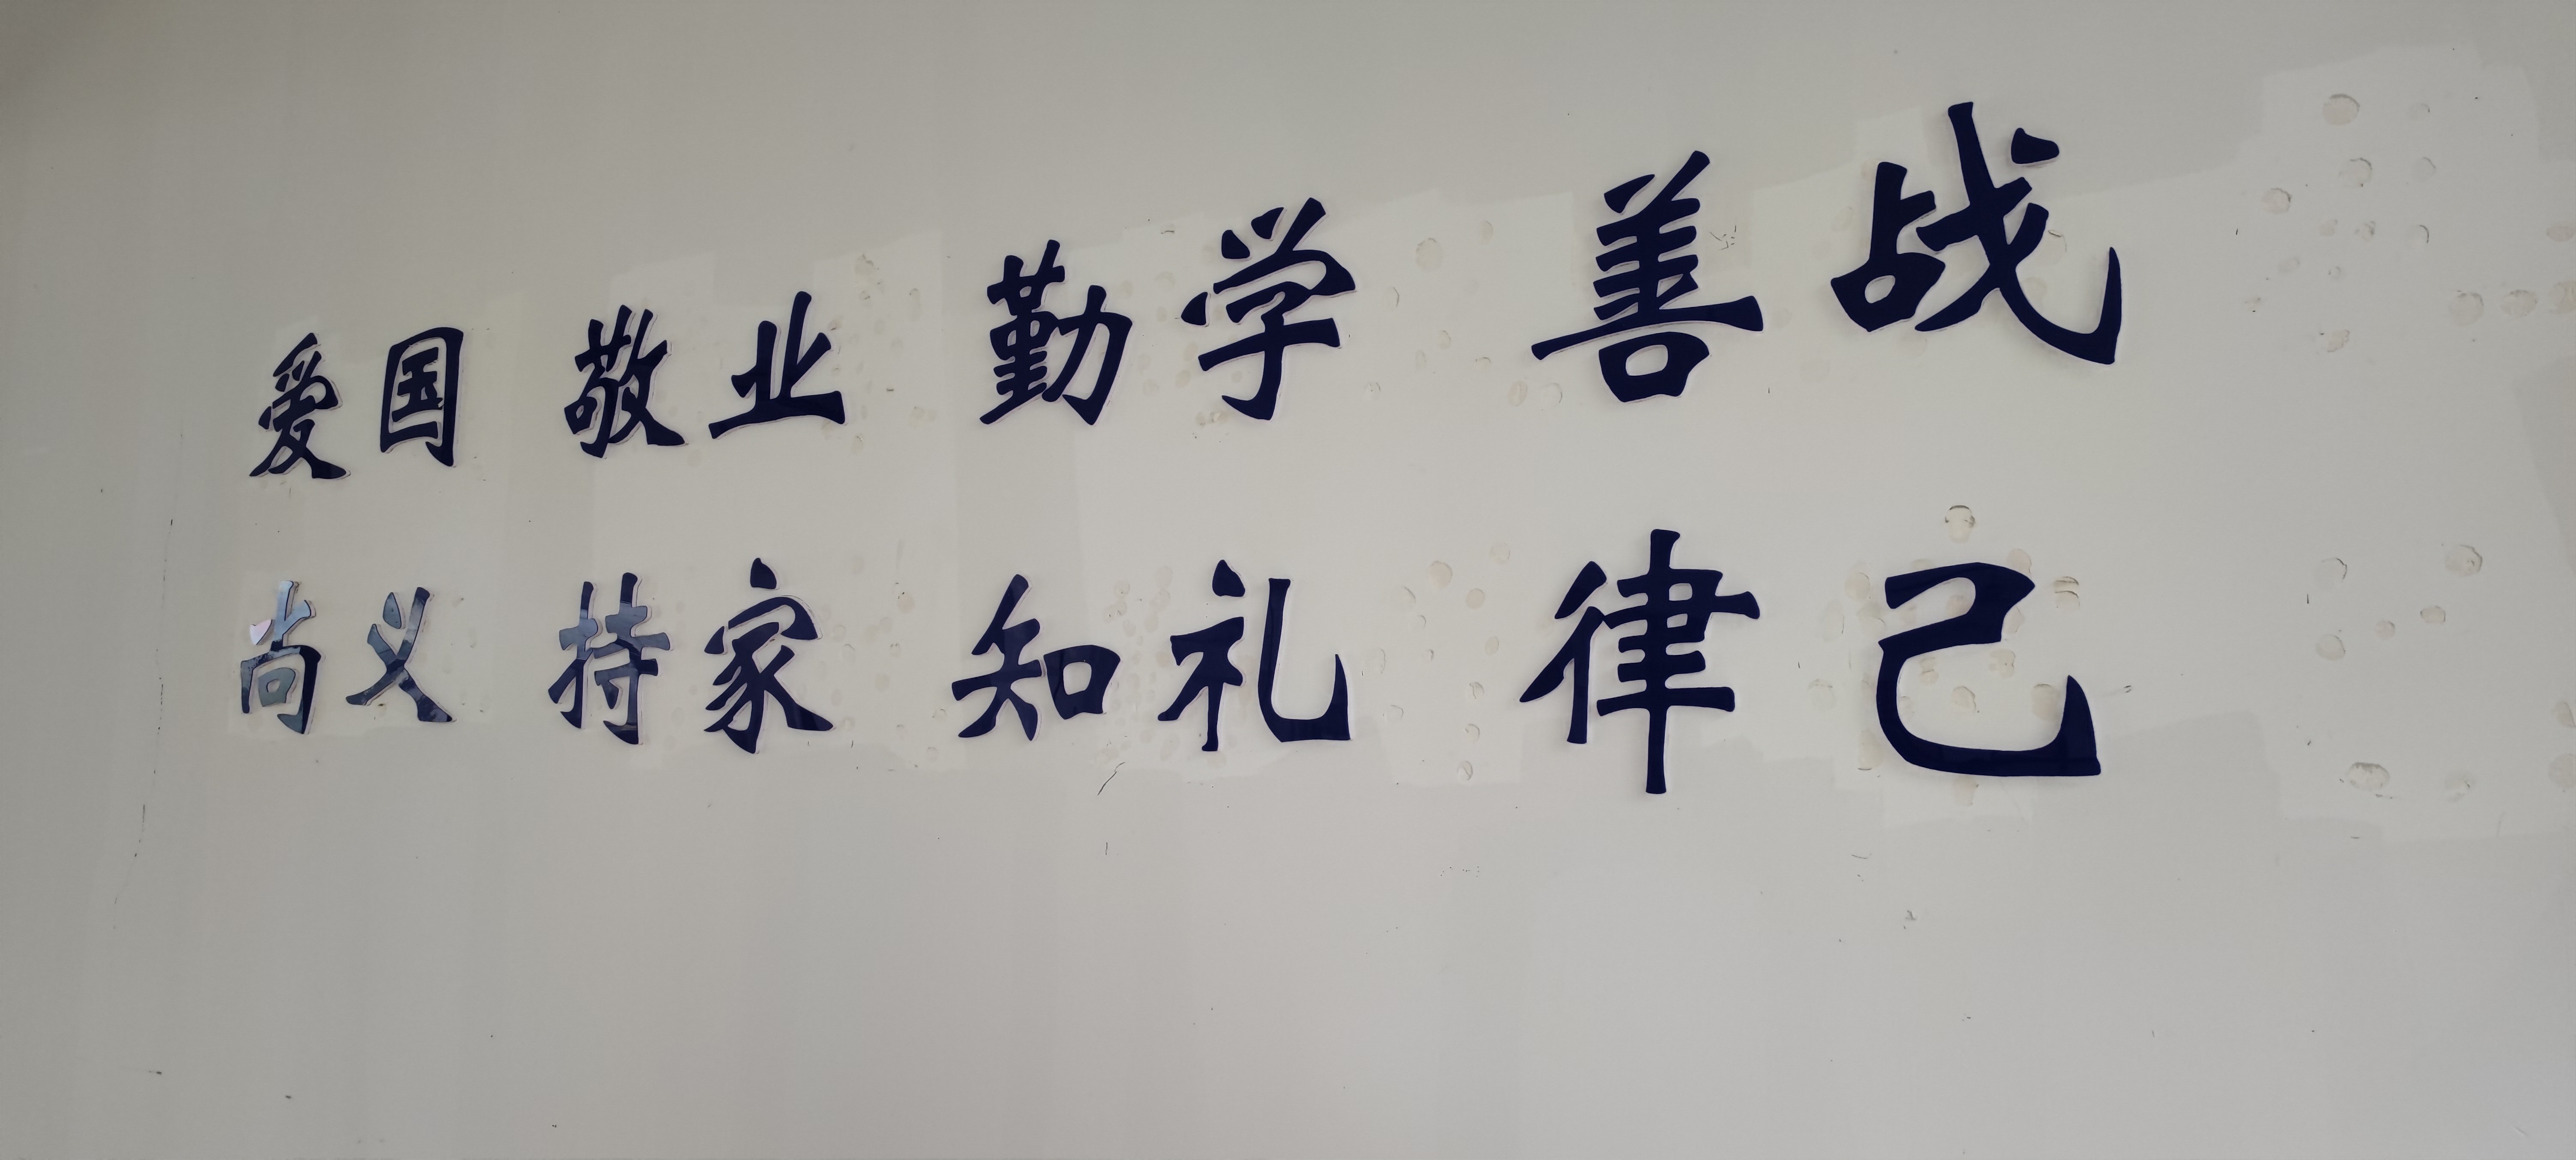 爱国 敬业 勤学 善战
尚义 持家 知礼 律己